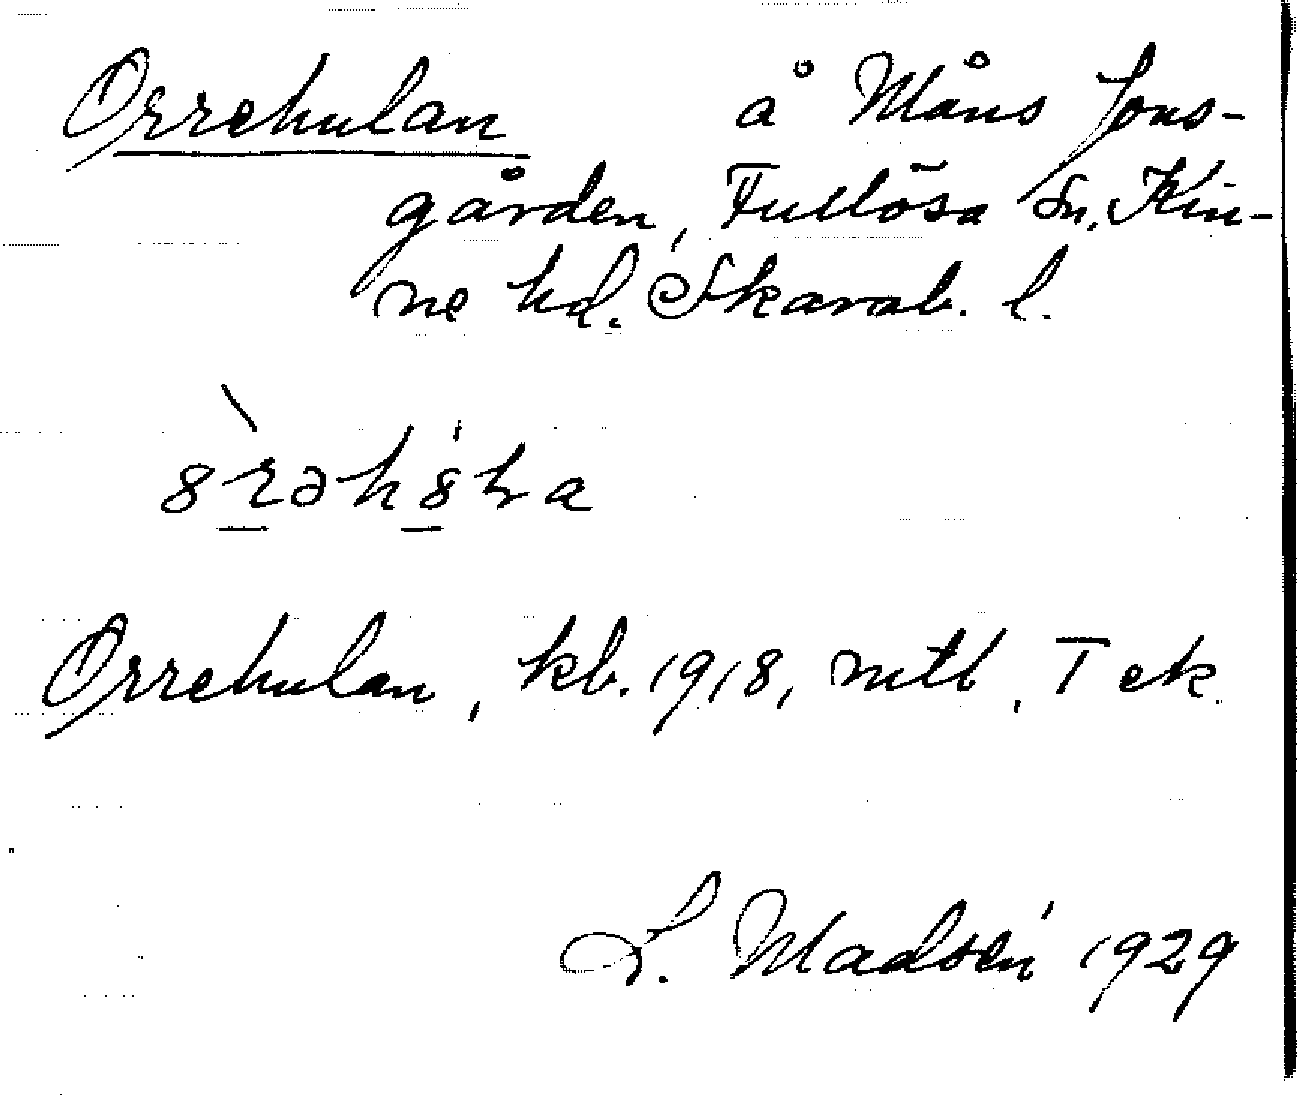 Orrehulan å Måns Jons-
gården, Fullösa Sn, Kin-
ne hd. Skarab. l.
Orrehulan, kb. 1918, mtl, Tek.
L. Madsén 1929